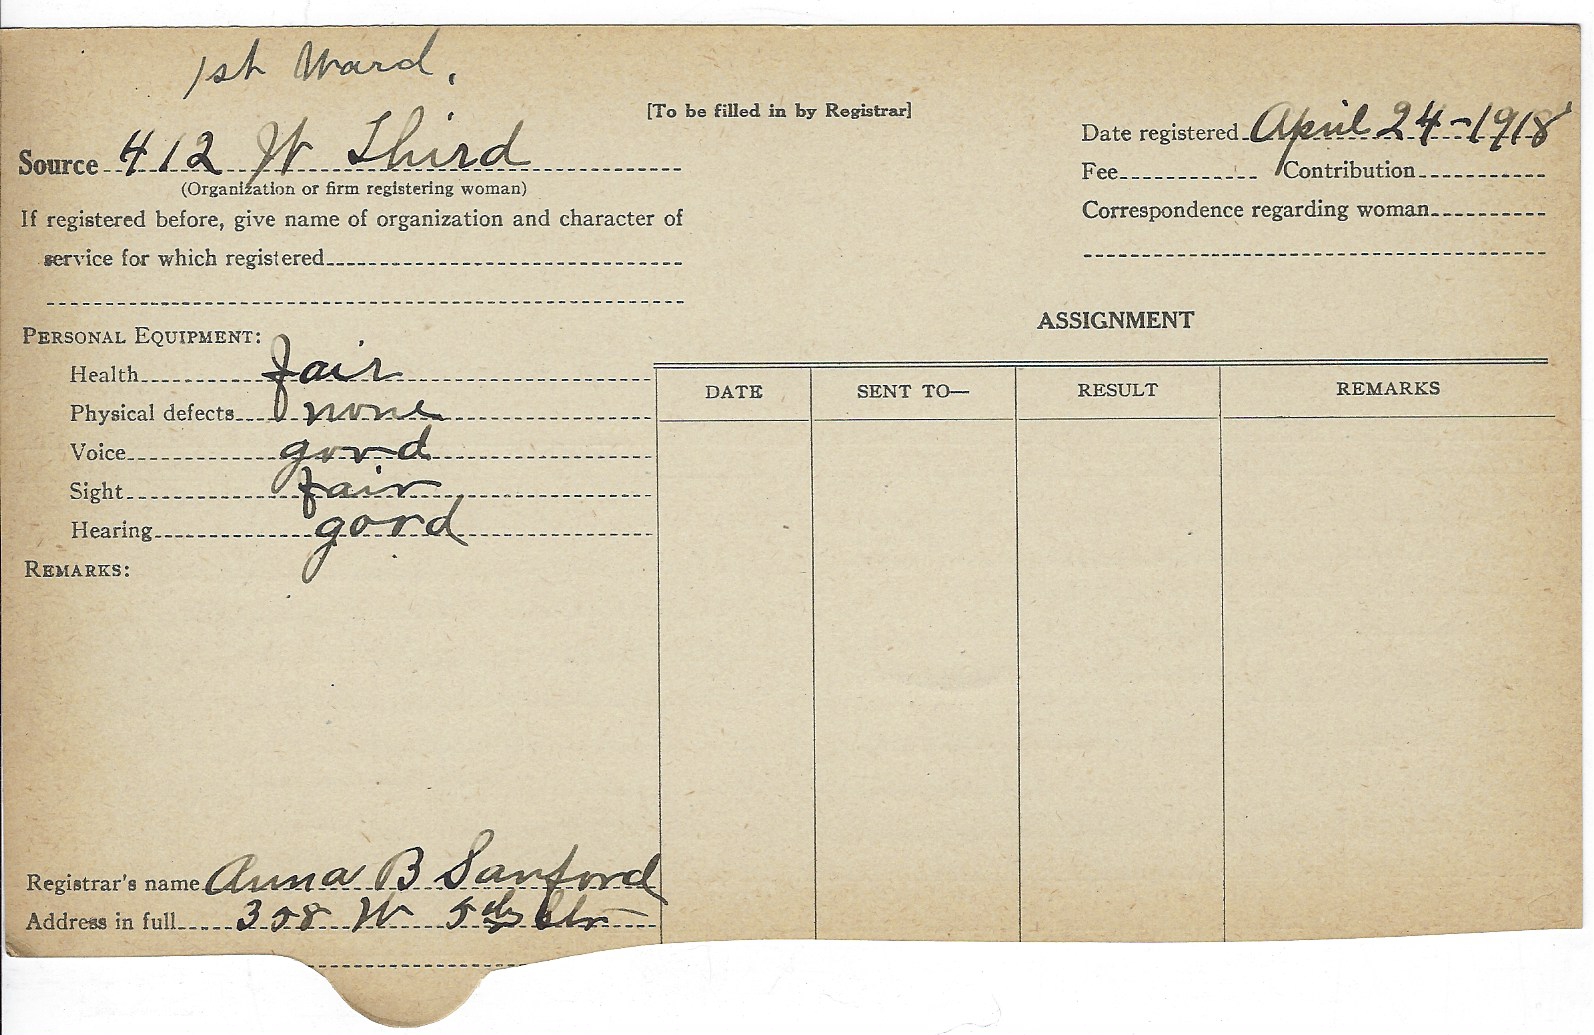 1st Ward.
[To be filled in by Registrar]
Source 412 W Third
(Organization or firm registering woman)
If registered before, give name of organization and character of
service for which registered
Date registered April 24-1918
Fee Contribution
Correspondence regarding woman
PERSONAL EQUIPMENT:
Health fair
Physical defects none
Voice good
Sight fair
Hearing good
REMARKS:
ASSIGNMENT
DATE SENT TO— RESULT REMARKS
Registrar's name Anna B Sanford
Address in full 358 W 5th Str